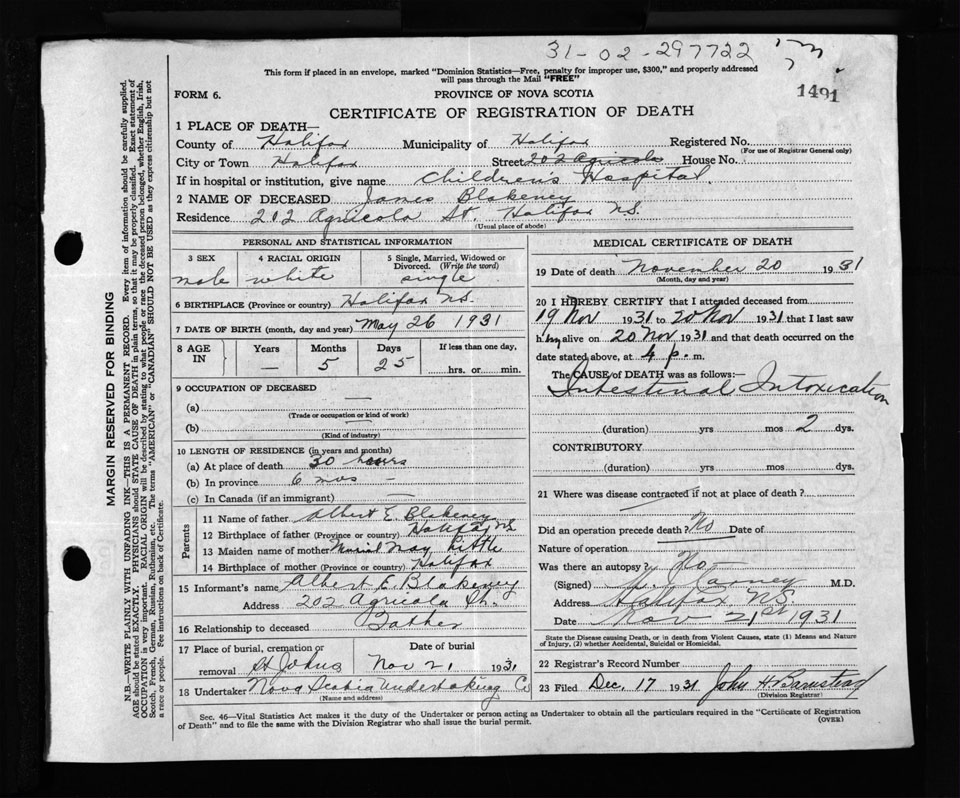 31-02-297722
1491
This form if placed in an envelope, marked "Dominion Statistics—Free, penalty for improper use, $300," and properly addressed
will pass through the Mail "FREE"
FORM 6.
PROVINCE OF NOVA SCOTIA
CERTIFICATE OF REGISTRATION OF DEATH
1 PLACE OF DEATH—
County of Halifax Municipality of Halifax Registered No.
(For use of Registrar General only)
City or Town Halifax Street 202 Agricola House No.
If in hospital or institution, give name Children's Hospital
2 NAME OF DECEASED James Blakeney
Residence 202 Agricola St. Halifax NS.
(Usual place of abode)
PERSONAL AND STATISTICAL INFORMATION
3 SEX 4 RACIAL ORIGIN 5 Single, Married, Widowed or Divorced. (Write the word)
male white single
6 BIRTHPLACE (Province or country) Halifax NS.
7 DATE OF BIRTH (month, day and year) May 26 1931
8 AGE IN Years Months Days If less than one day,
— 5 25 hrs. or min.
9 OCCUPATION OF DECEASED
(a) —
(Trade or occupation or kind of work)
(b)
(Kind of industry)
10 LENGTH OF RESIDENCE (in years and months)
(a) At place of death 30 hours
(b) In province 6 mos —
(c) In Canada (if an immigrant) —
Parents
11 Name of father Albert E. Blakeney
12 Birthplace of father (Province or country) Halifax NS
13 Maiden name of mother Muriel May Little
14 Birthplace of mother (Province or country) Halifax
15 Informant's name Albert E. Blakeney
Address 202 Agricola St.
16 Relationship to deceased Father
17 Place of burial, cremation or removal St Johns
Date of burial Nov 21, 1931
18 Undertaker Nova Scotia Undertaking Co
(Name and address)
MEDICAL CERTIFICATE OF DEATH
19 Date of death November 20 1931
(Month, day and year)
20 I HEREBY CERTIFY that I attended deceased from
19 Nov 1931 to 20 Nov 1931 that I last saw
him alive on 20 Nov 1931 and that death occurred on the
date stated above, at 4 p. m.
The CAUSE of DEATH was as follows:—
Intestinal Intoxication
(duration) yrs mos 2 dys.
CONTRIBUTORY
(duration) yrs mos dys.
21 Where was disease contracted if not at place of death?
Did an operation precede death? No Date of
Nature of operation
Was there an autopsy No
(Signed) M.D.
Address Halifax NS
Date Nov 21st 1931
State the Disease causing Death, or in death from Violent Causes, state (1) Means and Nature
of Injury, (2) whether Accidental, Suicidal or Homicidal.
22 Registrar's Record Number
23 Filed Dec. 17 1931 John H Barnstead
(Division Registrar)
Sec. 46—Vital Statistics Act makes it the duty of the Undertaker or person acting as Undertaker to obtain all the particulars required in the "Certificate of Registration
of Death" and to file the same with the Division Registrar who shall issue the burial permit.
(OVER)
MARGIN RESERVED FOR BINDING
N.B.—WRITE PLAINLY WITH UNFADING INK—THIS IS A PERMANENT RECORD. Every item of information should be carefully supplied.
AGE should be stated EXACTLY. PHYSICIANS should STATE CAUSE OF DEATH in plain terms, so that it may be properly classified. Exact statement of
OCCUPATION is very important. RACIAL ORIGIN will be described by stating to what people or race the deceased person belonged, whether English, Irish,
Scotch, French, German, Russian, Ruthenian, etc. The terms "AMERICAN" or "CANADIAN" SHOULD NOT BE USED as they express citizenship but not
a race or people. See instructions on back of Certificate.